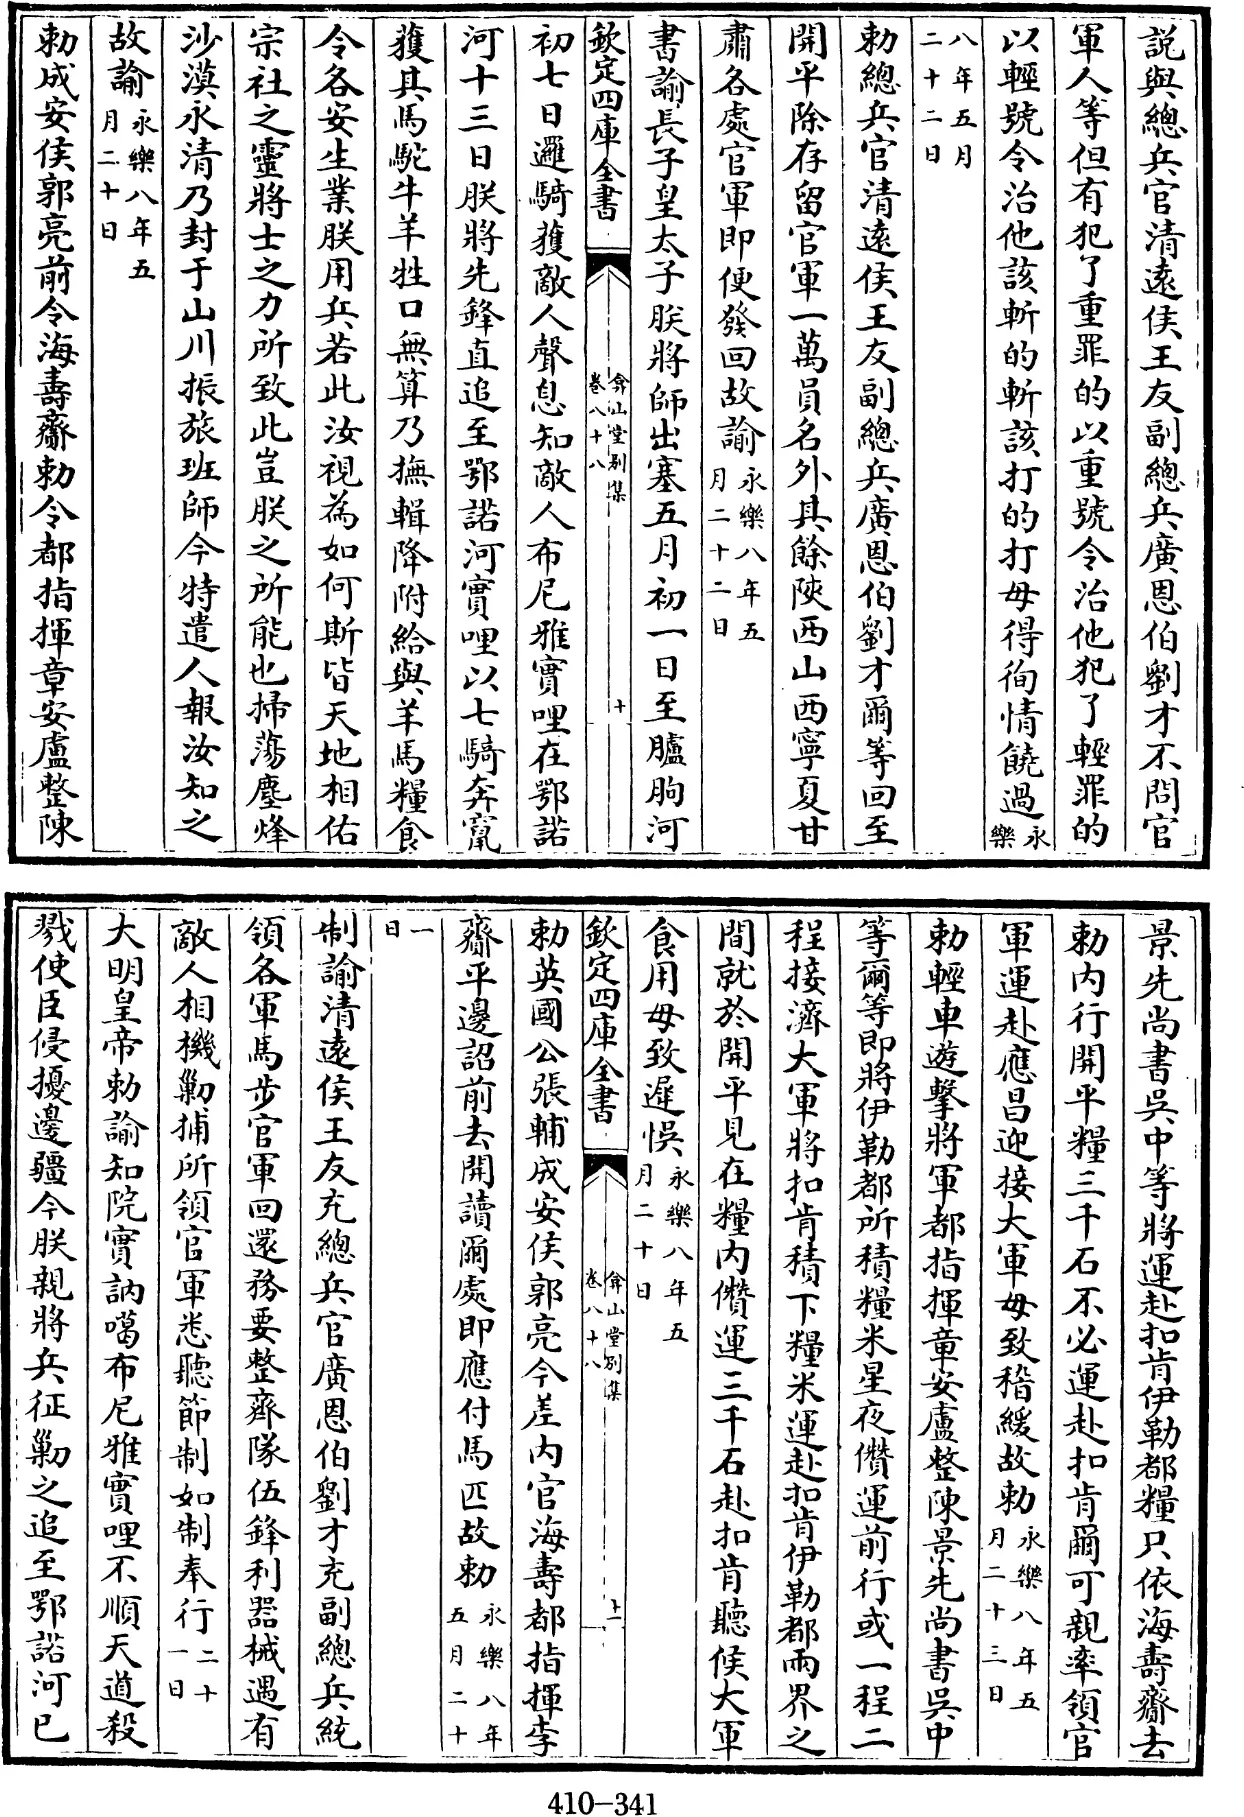 說與總兵官清遠侯王友副總兵廣恩伯劉才不問官
軍人等但有犯了重罪的以重號令治他犯了輕罪的
以輕號令治他該斬的斬該打的打毋得徇情饒過永樂
八年五月二十二日
勅總兵官清遠侯王友副總兵廣恩伯劉才爾等回至
開平除存留官軍一萬員名外其餘陝西山西寧夏甘
肅各處官軍即便發回故諭永樂八年五月二十二日
書諭長子皇太子朕將師出塞五月初一日至臚朐河
欽定四庫全書
弇山堂別集
卷八十八
十
初七日邏騎獲敵人聲息知敵人布尼雅實哩在鄂諾
河十三日朕將先鋒直追至鄂諾河實哩以七騎奔竄
獲其馬駝牛羊牲口無算乃撫輯降附給與羊馬糧食
令各安生業朕用兵若此汝視為如何斯皆天地相佑
宗社之靈將士之力所致此豈朕之所能也掃蕩塵烽
沙漠永清乃封于山川振旅班師今特遣人報汝知之
故諭永樂八年五月二十日
勅成安侯郭亮前令海壽齎勅令都指揮章安盧整陳
景先尚書吳中等將運赴扣肯伊勒都糧只依海壽齎去
勅內行開平糧三千石不必運赴扣肯爾可親率領官
軍運赴應昌迎接大軍毋致稽緩故勅永樂八年五月二十三日
勅輕車遊擊將軍都指揮章安盧整陳景先尚書吳中
等爾等即將伊勒都所積糧米星夜儹運前行或一程二
程接濟大軍將扣肯積下糧米運赴扣肯伊勒都兩界之
間就於開平見在糧內儹運三千石赴扣肯聽候大軍
食用毋致遲悞永樂八年五月二十日
欽定四庫全書
弇山堂別集
卷八十八
十一
勅英國公張輔成安侯郭亮今差內官海壽都指揮李
齎平邊詔前去開讀爾處即應付馬匹故勅永樂八年五月二十
一日
制諭清遠侯王友充總兵官廣恩伯劉才充副總兵統
領各軍馬步官軍回還務要整齊隊伍鋒利器械遇有
敵人相機勦捕所領官軍悉聽節制如制奉行二十一日
大明皇帝勅諭知院實訥噶布尼雅實哩不順天道殺
戮使臣侵擾邊疆今朕親將兵征勦之追至鄂諾河已
410-341